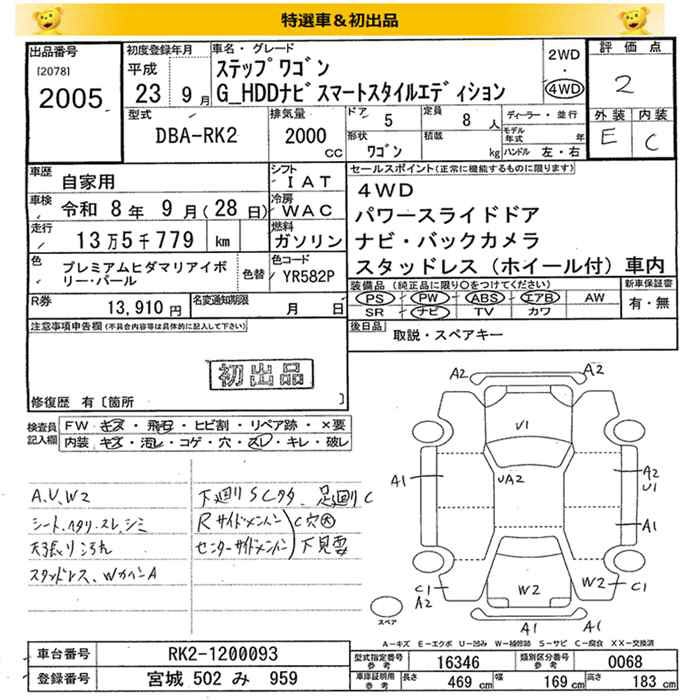 特選車＆初出品
出品番号
[2078]
2005
初度登録年月
平成
23 9月
車名・グレード
ステップワゴン
G_HDDナビスマートスタイルエディション
2WD
・
4WD
評価点
2
外装 内装
E C
型式
DBA-RK2
排気量
2000
CC
ドア 5
定員 8人
形状 ワゴン
積載 kg
ディーラー・並行
モデル年式 年
ハンドル 左・右
車歴
自家用
シフト
IAT
車検
令和 8年 9月(28日)
冷房
WAC
走行
13万5千779 km
燃料
ガソリン
色
プレミアムヒダマリアイボリー・パール
色替
色コード
YR582P
R券
13,910円
名変通知期限
月 日
セールスポイント(正常に機能するものに限ります)
4WD
パワースライドドア
ナビ・バックカメラ
スタッドレス（ホイール付）車内
装備品 (純正品に限り○をつけてください)
PS PW ABS エアB AW
SR ナビ TV カワ
新車保証書
有・無
後日品
取説・スペアキー
注意事項申告欄(不具合内容等は具体的に記入して下さい)
初出品
修復歴 有〔箇所 〕
検査員記入欄
FW キズ・飛石・ヒビ割・リペア跡・×要
内装 キズ・汚レ・コゲ・穴・スレ・キレ・破レ
A.U.W2
シート、ヘタリ・スレ、シミ
天張り
スタッドレス、W A
下廻りSC クタ、足廻りC
Rサイドメンバー
センターサイドメンバー
C穴大
下見要
A2
A2
U1
A1
UA2
A2
U1
A1
C1
A2
W2
W2
C1
A1
A1
スペア
A－キズ E－エクボ U－凹み W－補修跡 S－サビ C－腐食 XX－交換済
車台番号
RK2-1200093
登録番号
宮城 502 み 959
型式指定番号
参考
16346
類別区分番号
参考
0068
車庫証明用
参考
長さ 469cm
幅 169cm
高さ 183cm